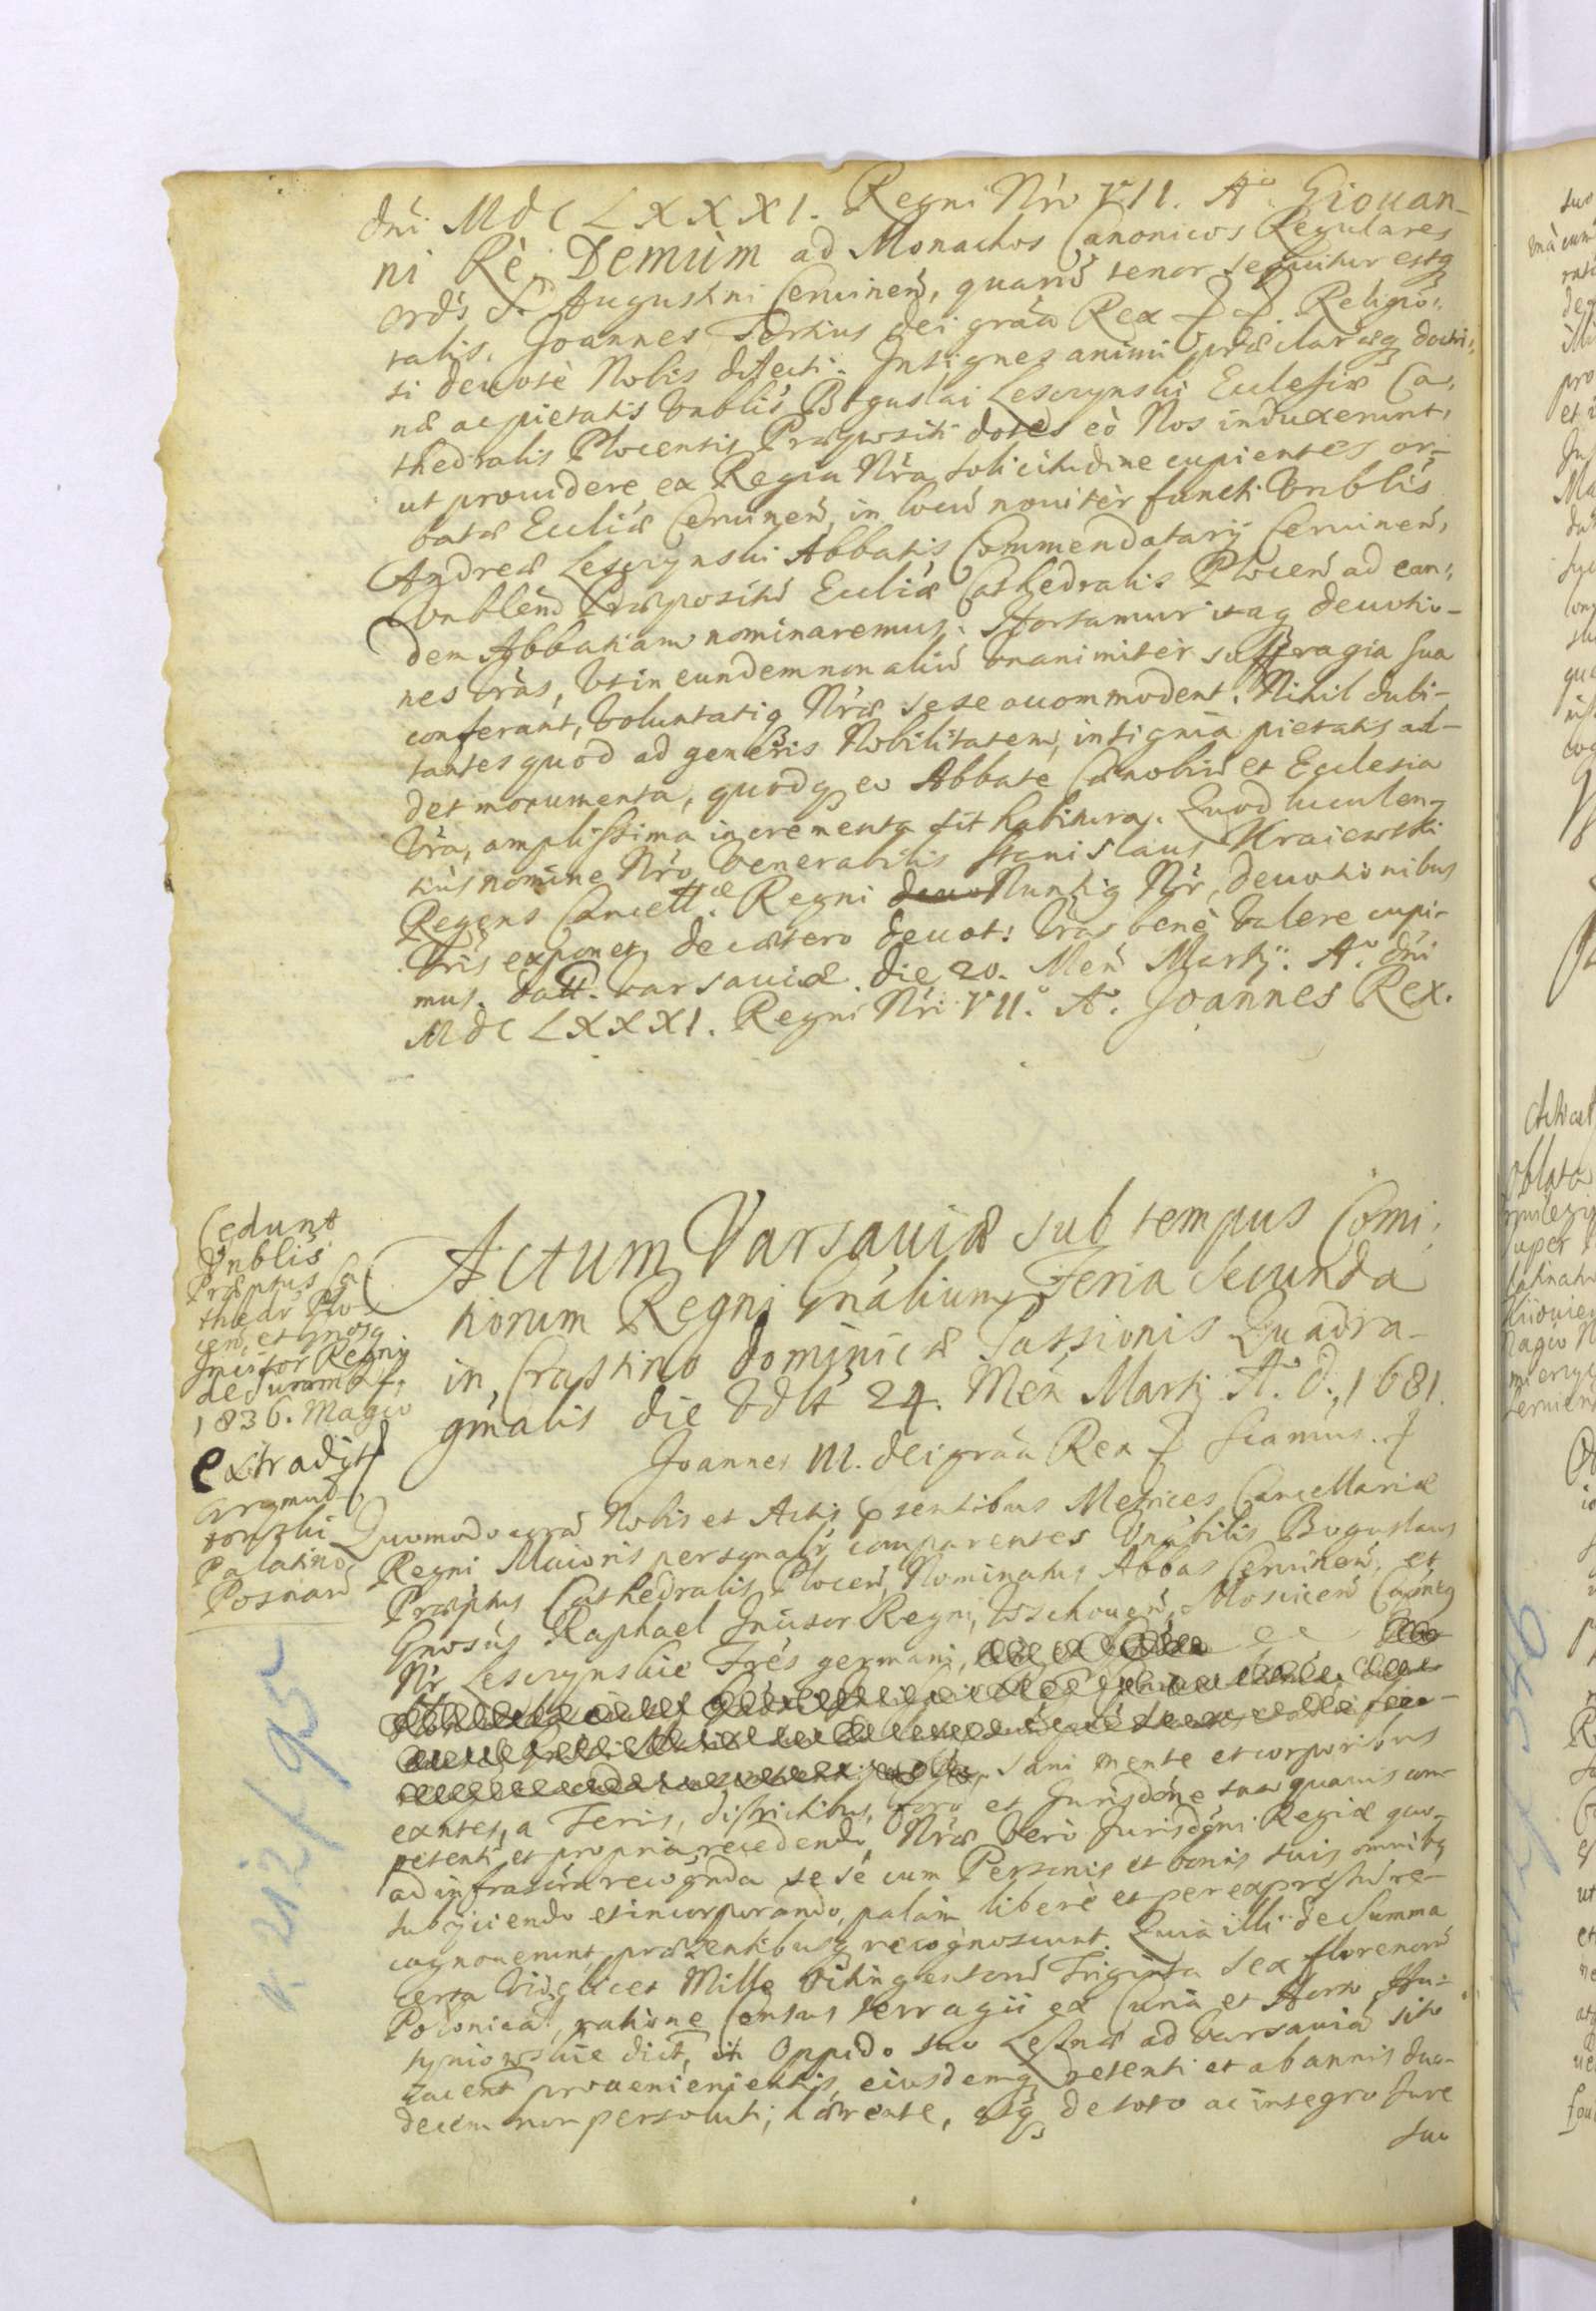 dni MdCLXXXI. Regni Nri VII. Aº Giouan-
ni Rè. Demùm ad Monachos Canonicos Regulares
ordis S. Augustini Ceruinen, quarũ tenor sequitur estq
talis. Joannes Tertius Dei graa Rex Religio:
si deuotè Nobis dilecti. Insignes animi præclaræq doctri:
næ ac pietatis Vnblis Boguslai Lesczynski Eclesiæ Ca:
thedralis Plocensis Præpositi dotes eò Nos induxerunt,
ut prouidere ex Regia Nra solicitudine cupientes or-
batæ Ecliæ Ceruinen, in locũ nouitèr functi Vnblis
Andreæ Lesczynski Abbatis Commendatarij Ceruinen,
Vnblem Præpositũ Ecliæ Cathedralis Plocen ad ean:
dem Abbatiam nominaremus. Hortamur itaq deuotio-
nes Vras, Vt in eundem non aliũ vnanimitèr suffragia sua
conferant, Voluntatiq Nræ sese accommodent. Nihil dubi-
tantes quod ad generis Nobilitatem, insignia pietatis ad-
det monumenta, quodq eo Abbate Cænobiũ et Ecclesia
Vra, amplissima incrementa sit habitura. Quod luculen-
tiùs nomine Nro Venerabilis Stanislaus Kraiewski
Regens Cancellæ Regni deuo Nuntiq Nr, deuotionibus
Vris exponet, de cætero deuot: Vras benè Valere cupi-
mus. Datt. Varsauiæ die 20. Men Martij. Aº dni
MdCLXXXI. Regni Nri VIIº Aº. Joannes Rex.
Cedunt
Vnblis
Præptus Ca
thedr Plo-
cen, et Gnosq
Incisor Regni
de Summa
1836. Magco
extradit
Palatino
Posnan
Actum Varsauiæ sub tempus Comi:
tiorum Regni Gnalium, Feria Secunda
in Crastino Dominicæ Passionis Quadra-
gmalis die Vdlt 24. Men Martij A. D. 1681.
Joannes III. Dei graa Rex
Quomodo corã Nobis et Actis pr̃sentibus Metrices Cancellariæ
Regni Maioris personalr comparentes Vnabilis Boguslaus
Præptus Cathedralis Plocen, Nominatus Abbas Ceruinen, et
Gnosus Raphael Incisor Regni, Wschouen, Moscicen Capneq
Nr Lesczynskie Frès germani,
sani mente et corporibus
exntes, a Terris, districtibus, foro et Jurisdone sua quauis com-
petenti et propria recedendo, Nræ Verò Jurisdoni Regiæ quo-
ad infrascra recognda se sè cum Personis et bonis suis omnibq
subijciendo et incorporando, palàm liberè et per expressũ re-
cognouerunt, præsentibusq recognoscunt. Quia illi de Summa
certa Videlicet Mille Octingentorũ Triginta Sex florenorũ
Polonical, ratione Census terragii ex Curia et Horto
dict, in Oppido suo Lesznæ ad Varsauiã sito
iacent prouenientis, eiusdemq detenti et ab annis duo-
decim non persoluti, de toto ac integro Jure
suo